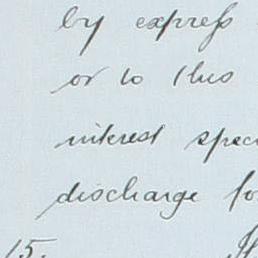 by express
or to this
interest spec
discharge fo
15.